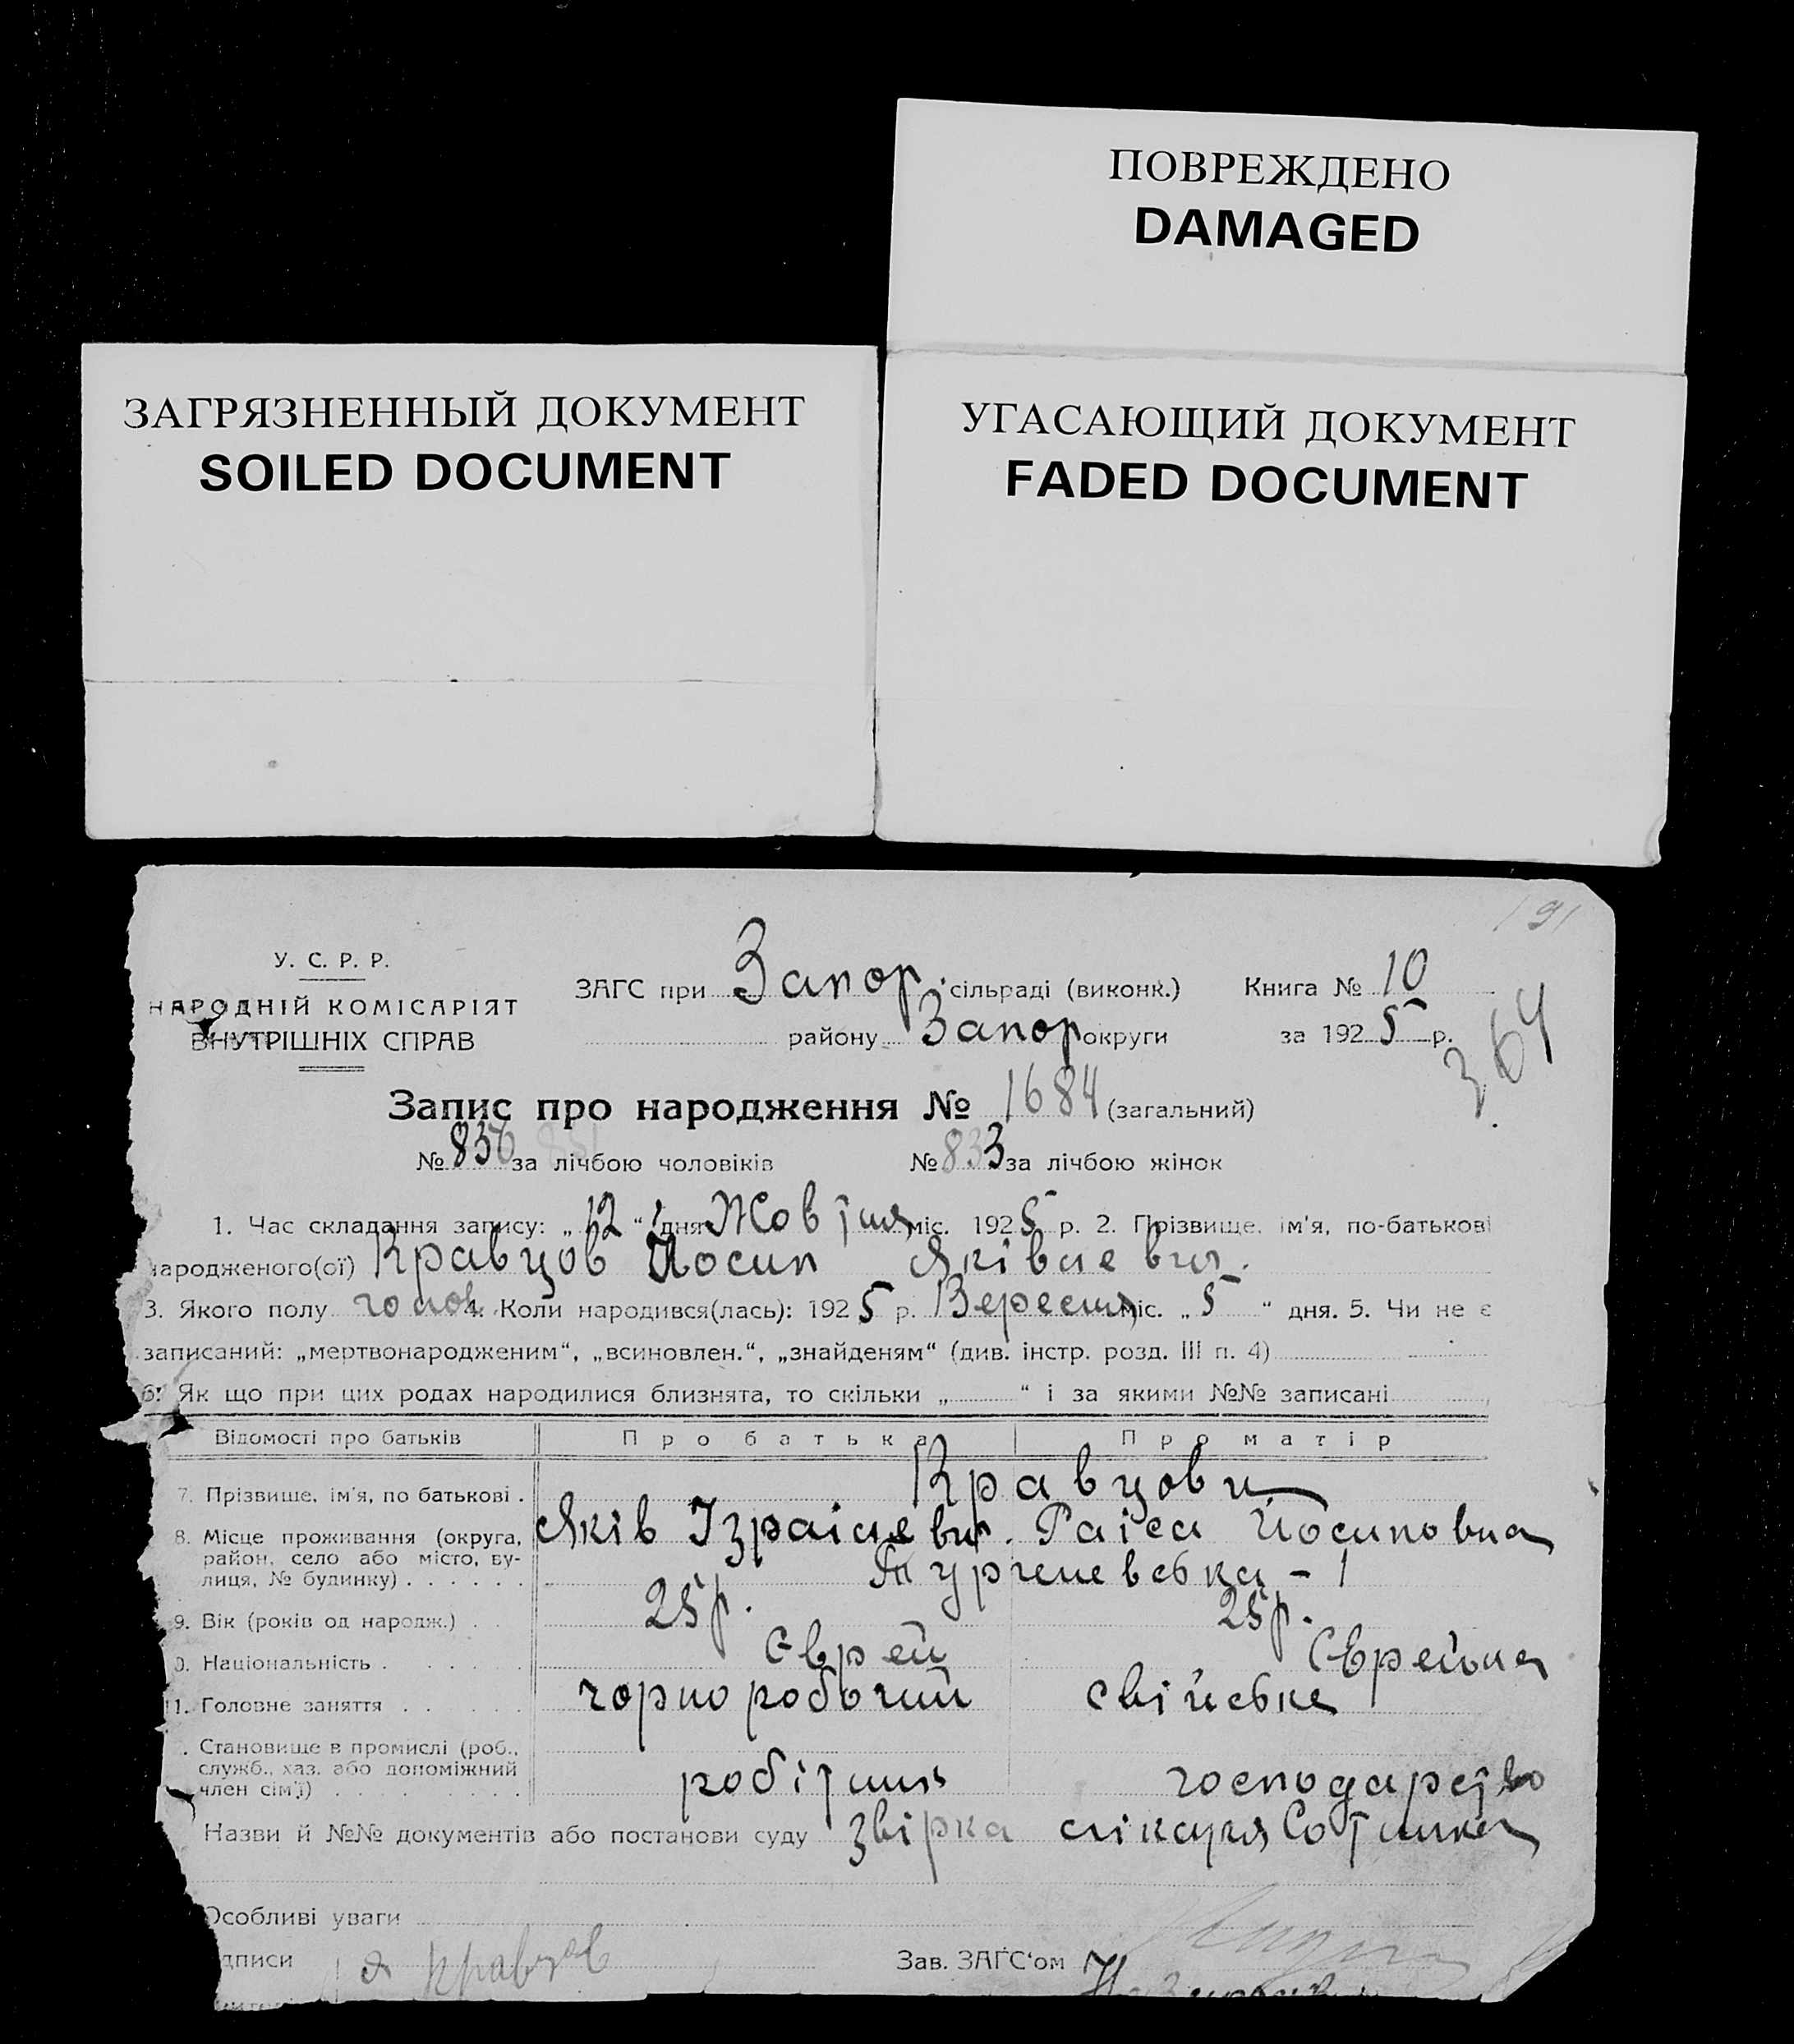 ПОВРЕЖДЕНО
DAMAGED
ЗАГРЯЗНЕННЫЙ ДОКУМЕНТ
SOILED DOCUMENT
УГАСАЮЩИЙ ДОКУМЕНТ
FADED DOCUMENT
191
У. С. Р. Р.
НАРОДНІЙ КОМІСАРІЯТ
ВНУТРІШНІХ СПРАВ
ЗАГС при Запор. сільраді (виконк.)
району Запор округи
Книга № 10
за 1925 р.
364
Запис про народження № 1684 (загальний)
№ 836 за лічбою чоловіків № 833 за лічбою жінок
1. Час складання запису: „12“ дня Жовтня міс. 1925 р. 2. Прізвище, ім'я, по-батькові
народженого(ої) Кравцов Йосип Яківлевич.
3. Якого полу чолов. 4. Коли народився(лась): 1925 р. Вересня міс. „5“ дня. 5. Чи не є
записаний: „мертвонародженим“, „всиновлен.“, „знайденям“ (див. інстр. розд. III п. 4)
6. Як що при цих родах народилися близнята, то скільки „ “ і за якими №№ записані
Відомості про батьків Про батька Про матір
7. Прізвише, ім'я, по батькові . Кравцови
Яків Ізраілевич. Раіса Йосиповна
8. Місце проживання (округа,
район, село або місто, ву-
лиця, № будинку) . . . . . . Тургеневська - 1
9. Вік (років од народж.) . . 25 р. 25 р.
0. Національність . . . . . Єврей Єврейка
11. Головне заняття . . . . . чорноробочий свійське
. Становище в промислі (роб.,
служб., хаз. або допоміжний
член сім'ї) . . . . . . . . робітник господарство
Назви й №№ документів або постанови суду звірка лікаря Сотника
Особливі уваги
дписи Я Кравцов Зав. ЗАГС'ом